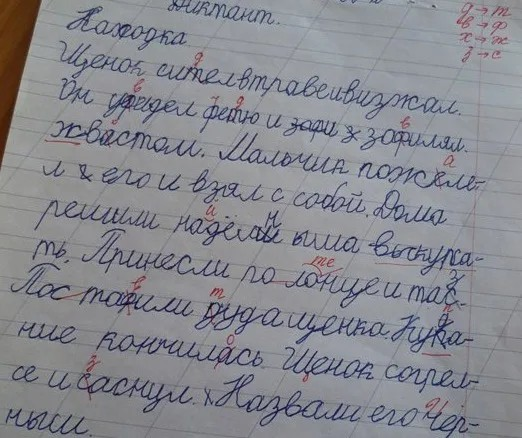 Диктант.
д → т
в → ф
х → ж
з → с
Находка
Щенок сителвтравеивизжал.
Он уфедел фетю и зафилял
жвастом. Мальчик пожеле-
л его и взял с собой. Дома
решили на ыша выкупа-
ть. Принесли по лонце и таз.
Постафили дуда щенка. Купа-
ние кончилось. Щенок согрел-
се и саснул. Назвали его Чер-
ныш.